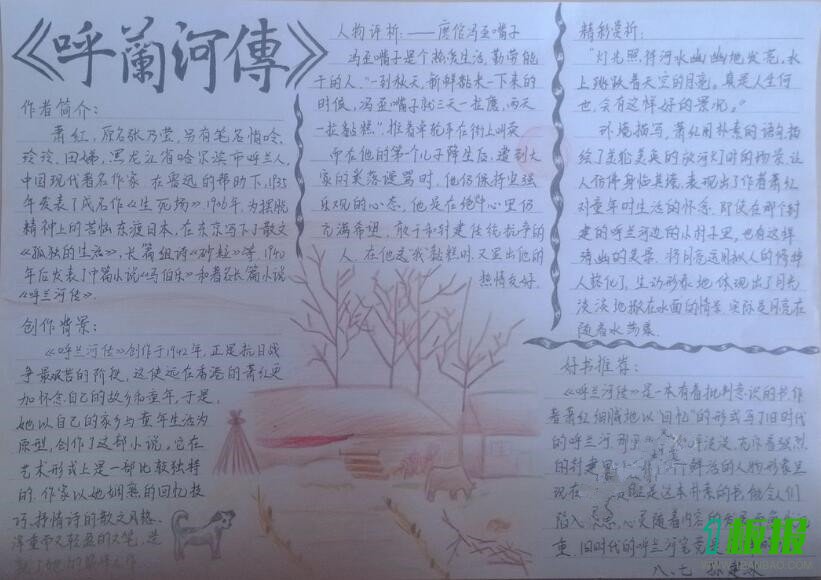 《呼蘭河傳》
作者简介：
萧红，原名张乃莹，另有笔名悄吟，
玲玲、田娣，黑龙江省哈尔滨市呼兰人，
中国现代著名作家，在鲁迅的帮助下，1935
年发表了成名作《生死场》，1936年，为摆脱
精神上的苦恼东渡日本，在东京写下了散文
《孤独的生活》，长篇组诗《砂粒》等，1940
年后发表了中篇小说《马伯乐》和著名长篇小说
《呼兰河传》。
创作背景：
《呼兰河传》创作于1942年，正是抗日战
争最艰苦的阶段，这使远在香港的萧红更
加怀念自己的故乡和童年，于是，
她以自己的家乡与童年生活为
原型，创作了这部小说，它在
艺术形式上是一部比较独特
的，作家以她娴熟的回忆技
巧、抒情诗的散文风格、
浑重而又轻盈的文笔，造
人物评析：——磨倌冯歪嘴子
冯歪嘴子是个热爱生活，勤劳能
干的人，“一到秋天，新鲜黏米一下来的
时候，冯歪嘴子就三天一拉磨，两天
一拉黏糕”，推着单轮车在街上叫卖
而在他的第一个儿子降生后，遭到大
家的奚落谩骂时，他仍保持坚强
乐观的心态，他是在绝望心里仍
充满希望，敢于和封建传统抗争的
人，在他送“我”黏糕时，又显出他的
热情友好。
精彩赏析：
“灯光照得河水幽幽地发亮，水
上跳跃着天空的月亮。真是人生何
也，会有这样好的景况。”
环境描写，萧红用朴素的语句描
绘了美轮美奂的放河灯时的场景，让
人仿佛身临其境，表现出了作者萧红
对童年时生活的怀念，即使在那个封
建的呼兰河边的小村子里，也有这样
绮丽的美景，将月亮运用拟人的修辞
人格化了，生动形象地体现出了月光
淡淡地撒在水面的情景，实际是月亮在
随着水荡漾。
好书推荐：
《呼兰河传》是一本有着批判意识的书，作
者萧红细腻地以“回忆”的形式写了旧时代
的呼兰河
的封建
现在 是这本朴素的书，能令人们
陷入沉思，心灵随着内容的
重，旧时代的呼兰河究竟是
八、七
板报
WWW.1BANBAO.COM